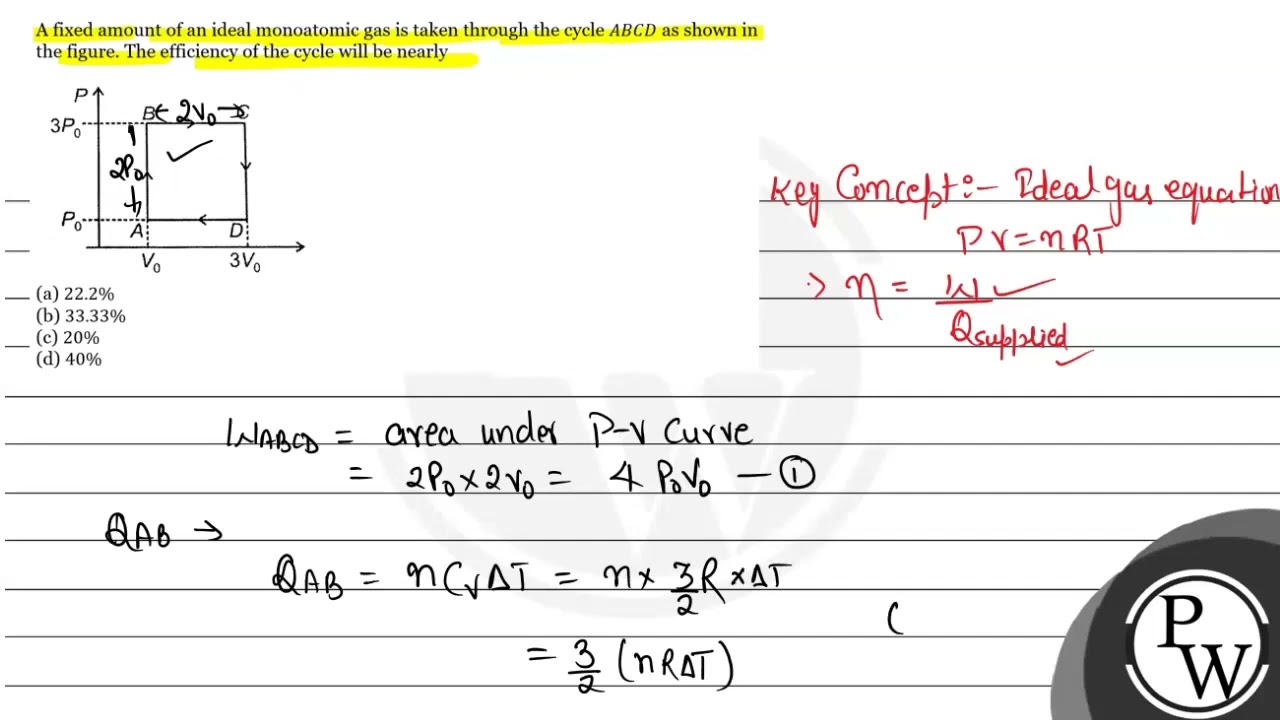 A fixed amount of an ideal monoatomic gas is taken through the cycle ABCD as shown in
the figure. The efficiency of the cycle will be nearly
P
B 2V₀ C
3P₀
2P₀
P₀
A D
V₀ 3V₀
(a) 22.2%
(b) 33.33%
(c) 20%
(d) 40%
Key Concept:- Ideal gas equation
PV = nRT
⇒ η = W / Qsupplied
WABCD = area under P-V Curve
= 2P₀ × 2V₀ = 4 P₀V₀ — ①
QAB →
QAB = nCvΔT = n × 3/2 R × ΔT
(
= 3/2 (nRΔT)
PW